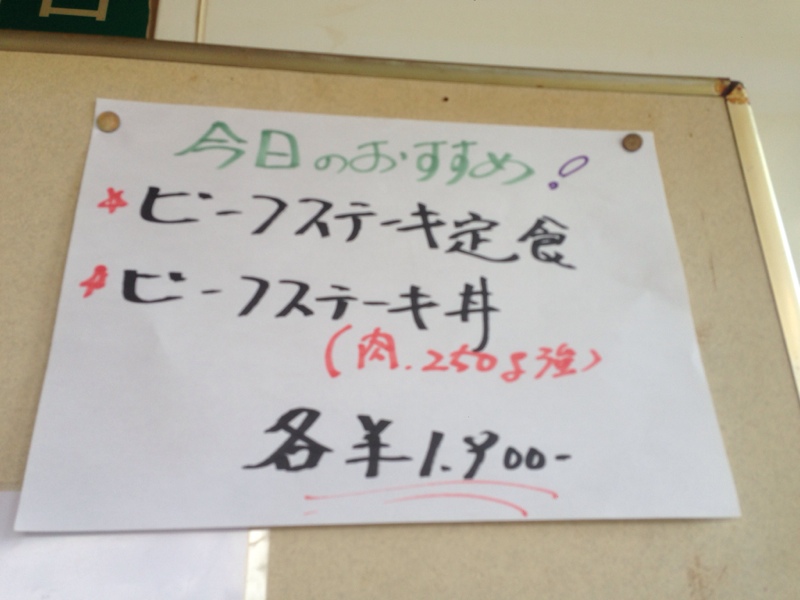 今日のおすすめ!
☆ビーフステーキ定食
☆ビーフステーキ丼
(肉.250g強)
各¥1.900-